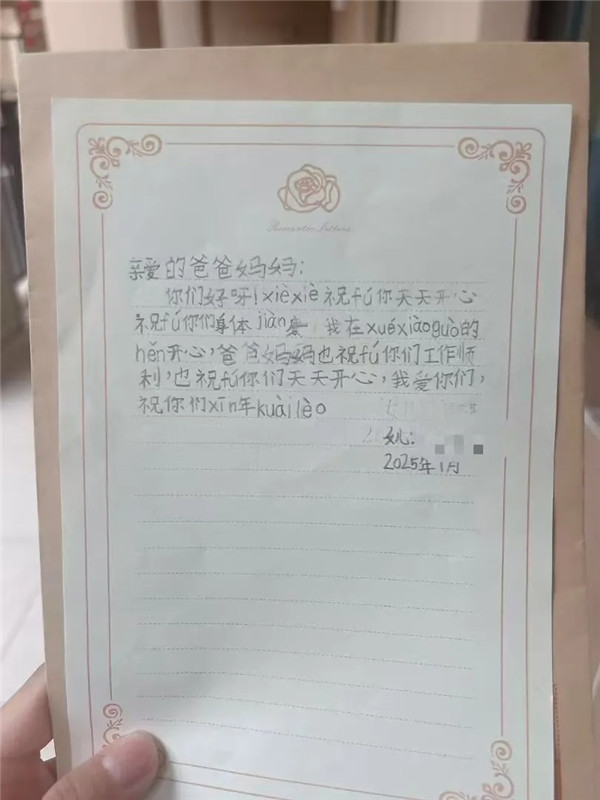 Romantic Letters
亲爱的爸爸妈妈:
你们好呀!xièxiè祝fú你天天开心
祝fú你们身体jiàn康 我在xuéxiàoguò的
hěn开心,爸爸妈妈也祝fú你们工作师
利,也祝fú你们天天开心,我爱你们,
祝你们xīn年kuàilè。
2025年1月